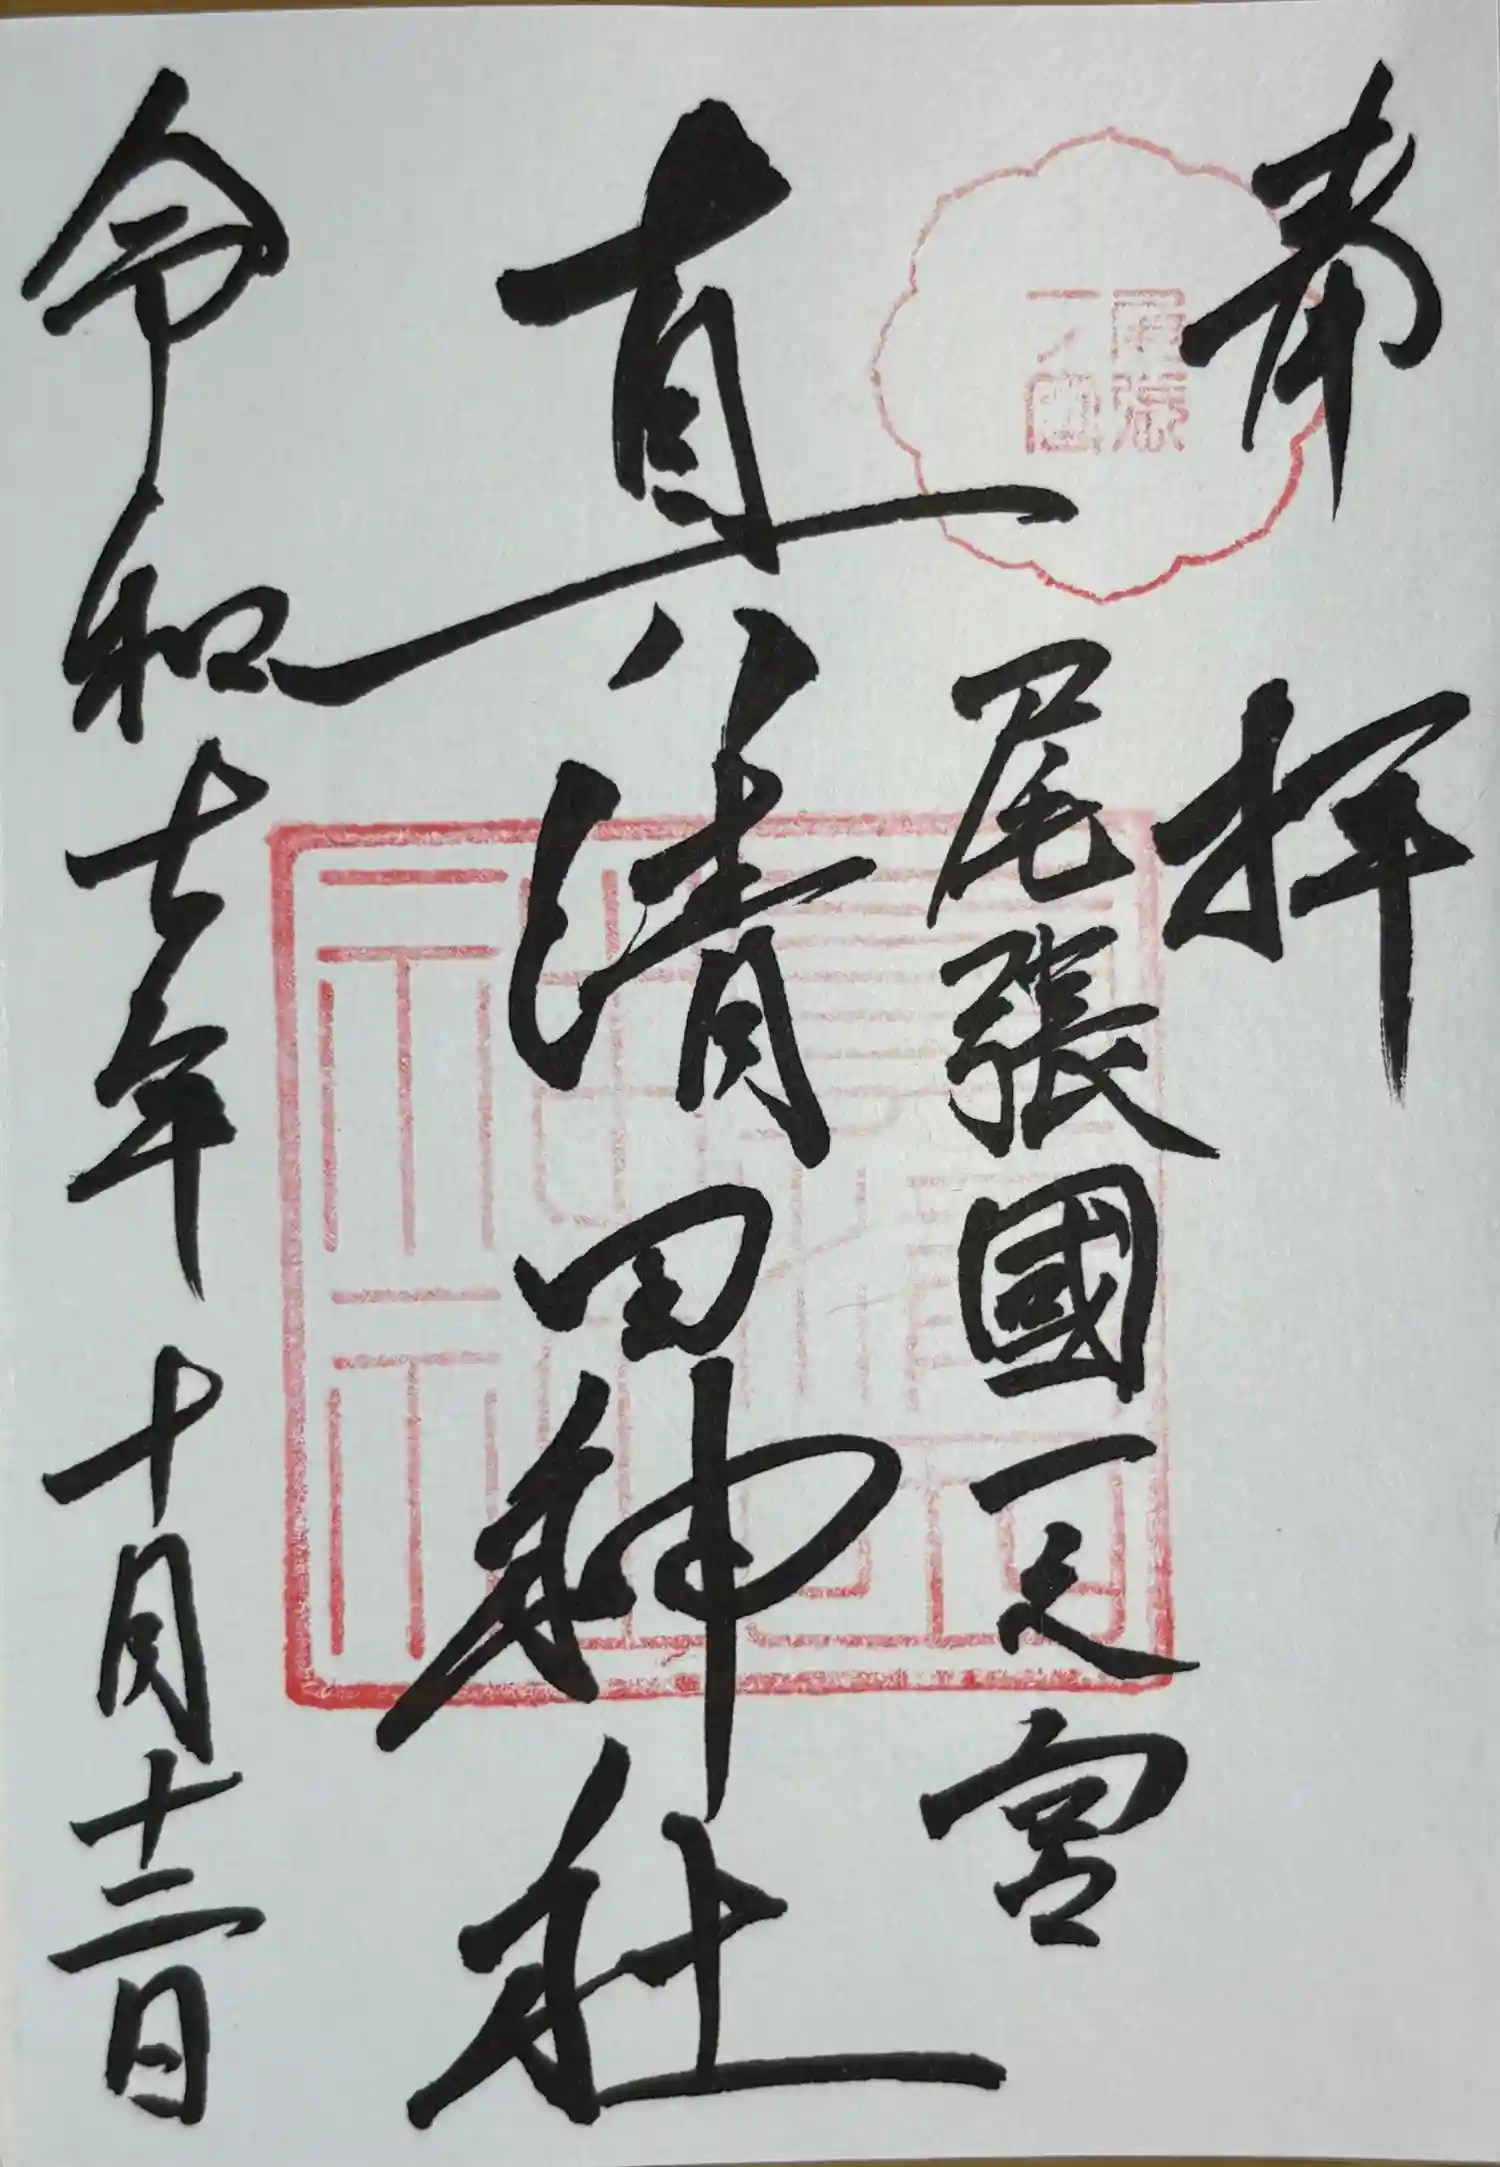 奉拝
尾張
一ノ宮
尾張國一之宮
真清田神社
令和七年十月十二日